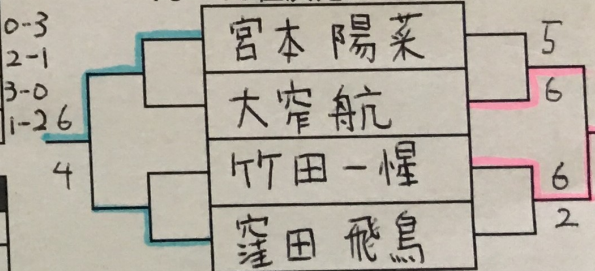 0-3
2-1
3-0
1-2 6
4
宮本 陽菜
大窄 航
竹田 一惺
窪田 飛鳥
5
6
6
2